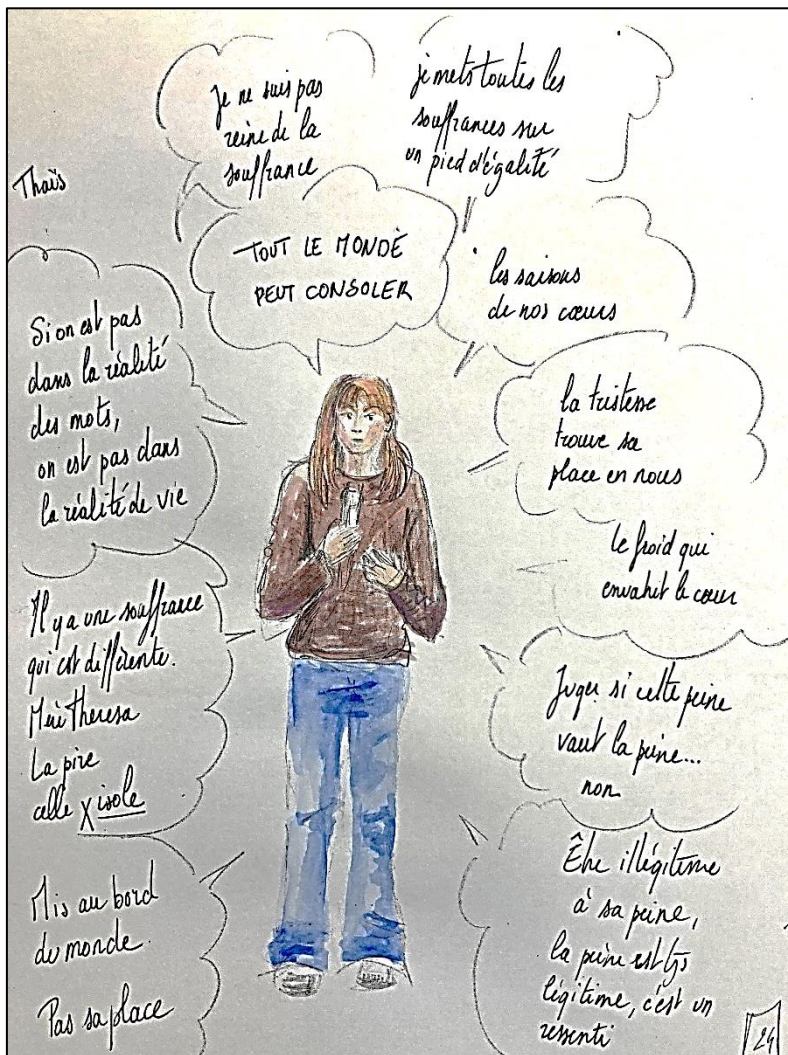 Thaïs
Je ne suis pas
reine de la
souffrance
je mets toutes les
souffrances sur
un pied d'égalité
TOUT LE MONDE
PEUT CONSOLER
les saisons
de nos cœurs
Si on est pas
dans la réalité
des mots,
on est pas dans
la réalité de vie
la tristesse
trouve sa
place en nous
le froid qui
envahit le cœur
Il y a une souffrance
qui est différente.
Mère Theresa
La pire
celle X isole
Juger si cette peine
vaut la peine...
non
Mis au bord
du monde.
Pas sa place
Être illégitime
à sa peine,
la peine est tjs
légitime, c'est un
ressenti
24